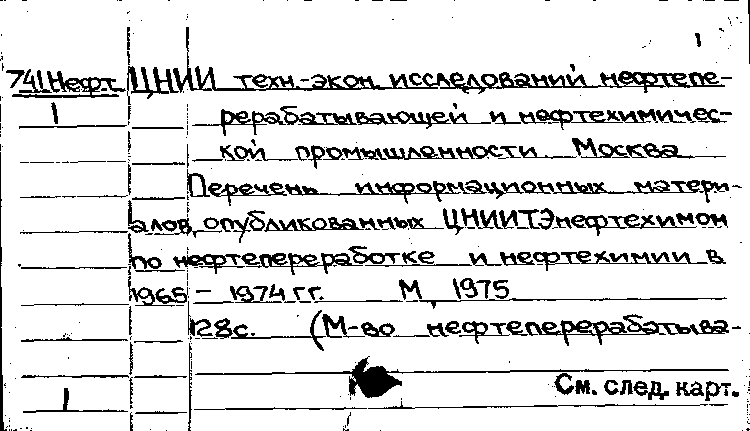 1
741Нефт. ЦНИИ техн.-экон. исследований нефтепе-
1 рерабатывающей и нефтехимичес-
кой промышленности. Москва
Перечень информационных матери-
алов, опубликованных ЦНИИТЭнефтехимом
по нефтепереработке и нефтехимии в
1965 - 1974 гг. М, 1975
128с. (М-во нефтеперерабатыва-
См. след. карт.
1